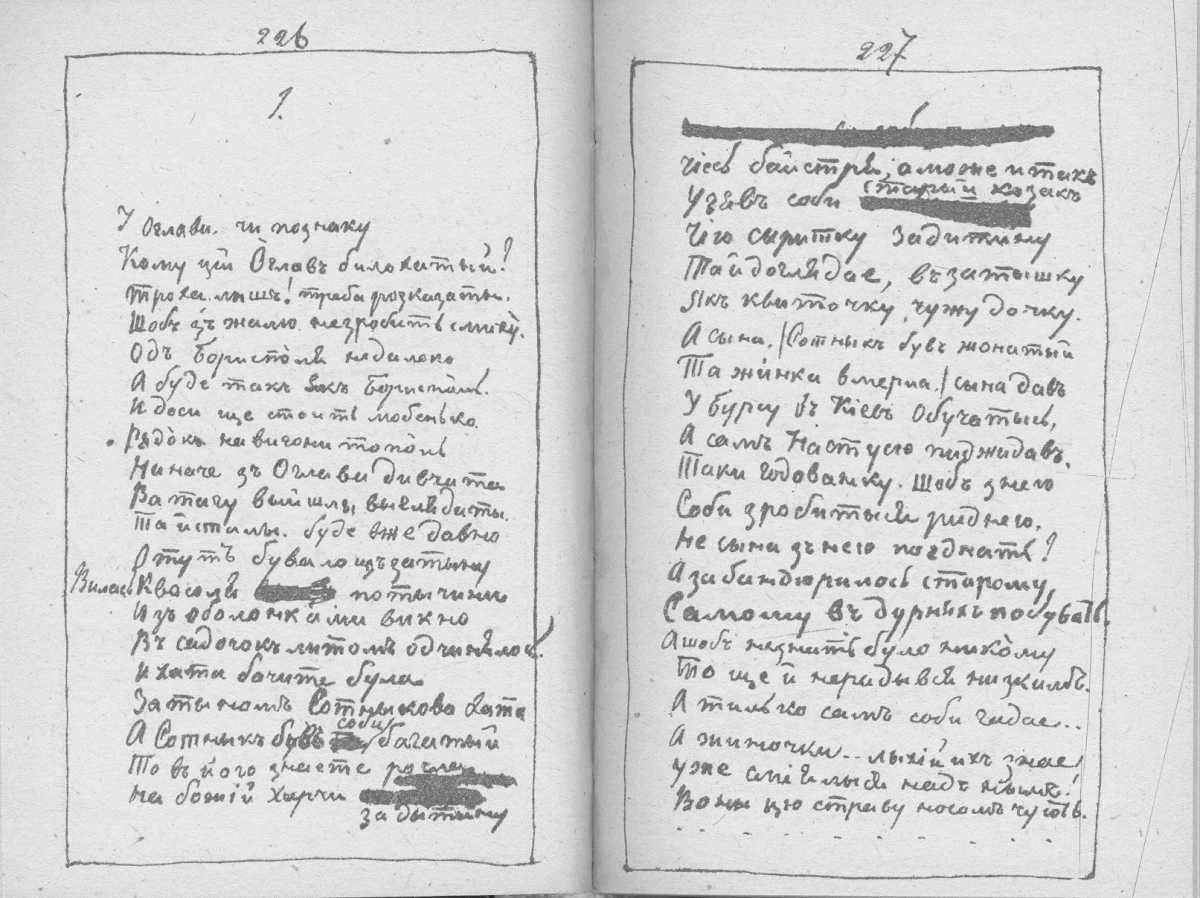 226
1.
У Оглави. чи по знаку
Кому цій Оглавъ билохатый?
Троха лышъ! треба розказаты.
Щобъ зъ жалю не зробить смиху.
Одъ Борисполя недалеко
А буде такъ якъ Бориспиль.
И доси ще стоить любенько
Рядокъ на вигони тополь
Неначе зъ Оглави дивчата
Ватагу выйшлы выглядаты.
Та й сталы. буде вже давно
Отутъ бувало изъ за тыну
Вилась Квасоля по тычини
И зъ оболонками викно
Въ садочокъ литомъ одчинялось.
И хата бачите була
За тыномъ Сотныкова хата
А Сотныкъ бувъ соби багатый
То въ його знаете росла
на божій харчи
за дытыну
227
Чіесь байстря, а може и такъ
Узявъ соби старый козакъ
Чіго сыритку за дитыну
Та й доглядае, въ затышку
Якъ квиточку, чужу дочку.
А сына, /Сотныкъ бувъ жонатый
Та жинка вмерла,/ сына давъ
У бурсу въ Кіевъ обучатысь,
А самъ Настусю пиджидавъ.
Таки годованку. Щобъ з нею
Соби зробитыся риднею.
Не сына зъ нею поеднать?
А забандюрилось старому,
Самому въ дурняхъ побувать.
А щобъ не знать було никому
То ще й нерадывся ни з кимъ.
А тилько самъ соби гадае..
А жиночки... лыхій ихъ знае!
Уже сміялыся надъ нымъ!
Воны цю страву носомъ чують.
. . . . . . . . . . . .